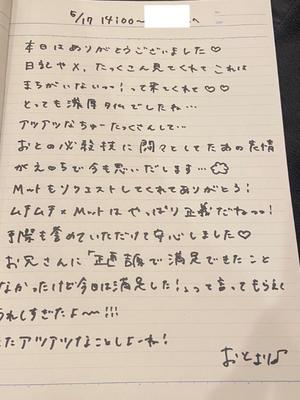 5/17 14:00〜　　　へ
本日はありがとうございました♡
日記やX、たっくさん見てくれてこれは
まちがいないっ!って来てくれて♡♡
とっても濃厚タイムでしたね…
アツアツなちゅーたっくさんして…
おとの必殺技に悶々としてたあの表情
がえっちで今も思いだします…
Mットもリクエストしてくれてありがとう!
ムチムチ×Mットはやっぱり正義だねっっ!
実際も誉めていただけて安心しました♡
お兄さんに「正直 吉原で満足できたこと
なかったけど今日は満足した!」って言ってもらえて
うれしすぎたよ〜!!!
またアツアツなことしよーね!
おとより♪